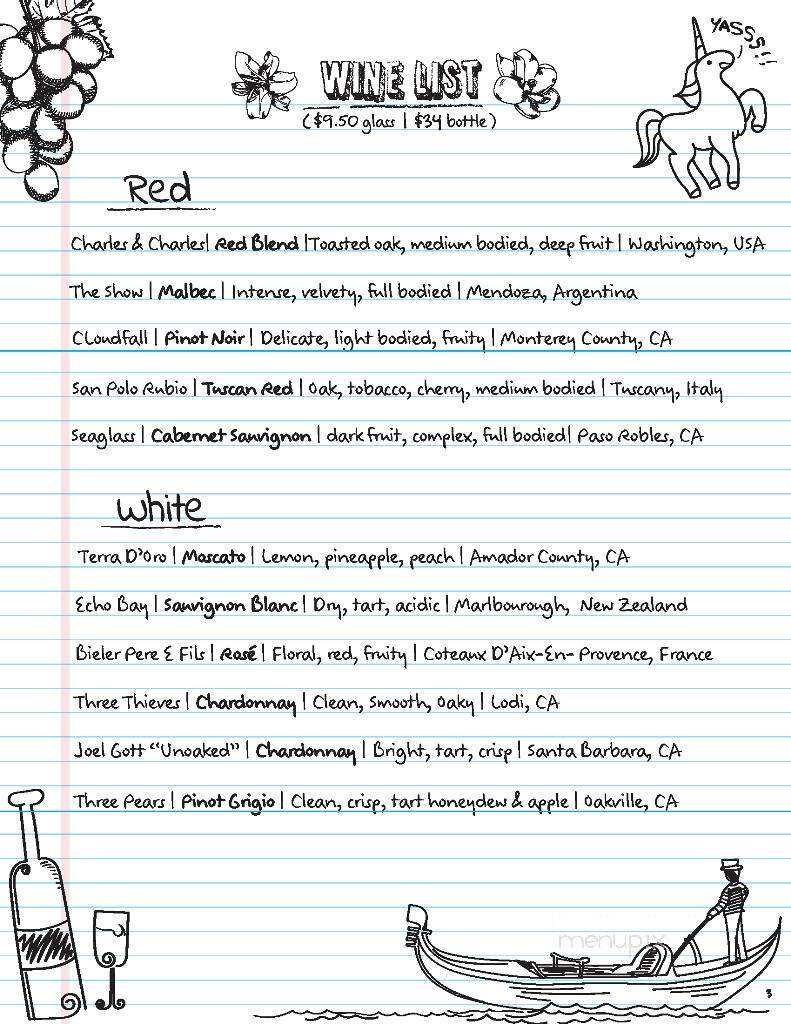 YASSS!!
WINE LIST
($9.50 glass | $34 bottle)
Red
Charles & Charles| Red Blend |Toasted oak, medium bodied, deep fruit | Washington, USA
The Show | Malbec | Intense, velvety, full bodied | Mendoza, Argentina
Cloudfall | Pinot Noir | Delicate, light bodied, fruity | Monterey County, CA
San Polo Rubio | Tuscan Red | Oak, tobacco, cherry, medium bodied | Tuscany, Italy
Seaglass | Cabernet Sauvignon | dark fruit, complex, full bodied| Paso Robles, CA
White
Terra D'Oro | Moscato | Lemon, pineapple, peach | Amador County, CA
Echo Bay | Sauvignon Blanc | Dry, tart, acidic | Marlbourough, New Zealand
Bieler Pere & Fils | Rosé | Floral, red, fruity | Coteaux D'Aix-En- Provence, France
Three Thieves | Chardonnay | Clean, Smooth, Oaky | Lodi, CA
Joel Gott "Unoaked" | Chardonnay | Bright, tart, crisp | Santa Barbara, CA
Three Pears | Pinot Grigio | Clean, crisp, tart honeydew & apple | Oakville, CA
menupix
3